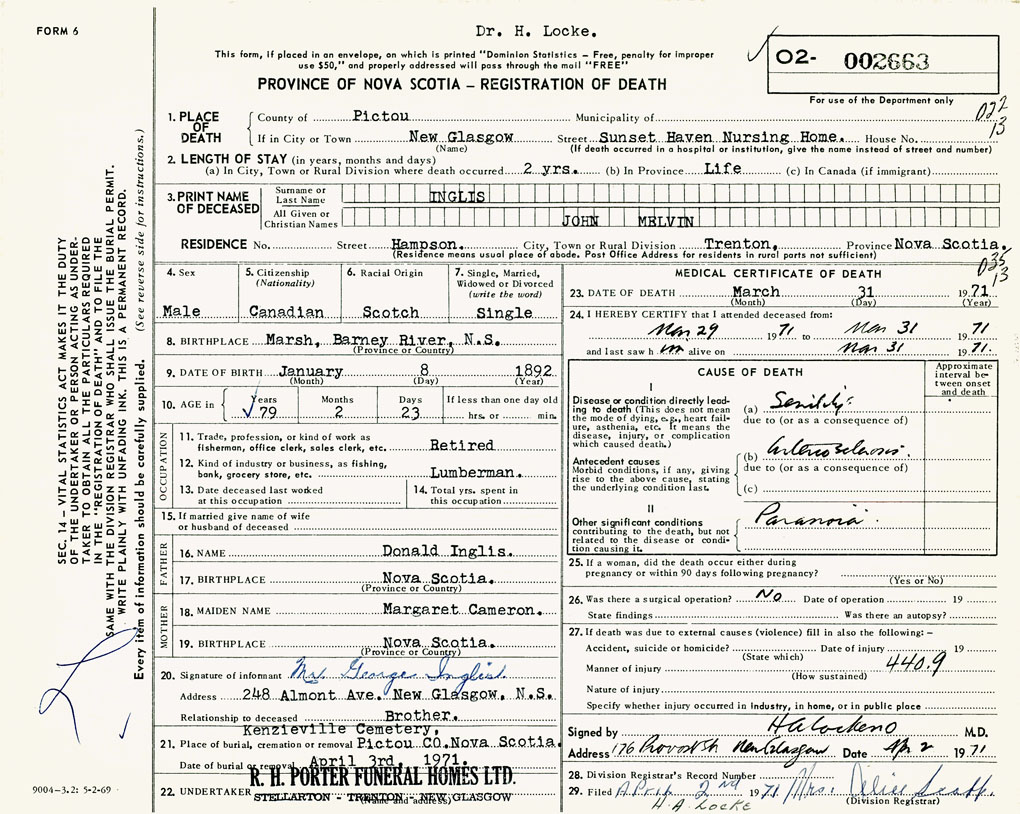 FORM 6
Dr. H. Locke.
This form, if placed in an envelope, on which is printed "Dominion Statistics – Free, penalty for improper
use $50," and properly addressed will pass through the mail "FREE"
PROVINCE OF NOVA SCOTIA – REGISTRATION OF DEATH
O2- 002663
For use of the Department only
022
13
1. PLACE OF DEATH
County of Pictou Municipality of
If in City or Town New Glasgow Street Sunset Haven Nursing Home. House No.
(Name) (If death occurred in a hospital or institution, give the name instead of street and number)
2. LENGTH OF STAY (in years, months and days)
(a) In City, Town or Rural Division where death occurred 2 yrs. (b) In Province Life (c) In Canada (if immigrant)
3. PRINT NAME OF DECEASED
Surname or Last Name INGLIS
All Given or Christian Names JOHN MELVIN
RESIDENCE No. Street Hampson. City, Town or Rural Division Trenton, Province Nova Scotia.
(Residence means usual place of abode. Post Office Address for residents in rural parts not sufficient)
035
13
4. Sex
Male
5. Citizenship
(Nationality)
Canadian
6. Racial Origin
Scotch
7. Single, Married,
Widowed or Divorced
(write the word)
Single
8. BIRTHPLACE Marsh, Barney River, N.S.
(Province or Country)
9. DATE OF BIRTH January 8 1892
(Month) (Day) (Year)
10. AGE in
Years Months Days If less than one day old
79 2 23 hrs. or min.
OCCUPATION
11. Trade, profession, or kind of work as
fisherman, office clerk, sales clerk, etc. Retired
12. Kind of industry or business, as fishing,
bank, grocery store, etc. Lumberman.
13. Date deceased last worked
at this occupation
14. Total yrs. spent in
this occupation
15. If married give name of wife
or husband of deceased
FATHER
16. NAME Donald Inglis.
17. BIRTHPLACE Nova Scotia.
(Province or Country)
MOTHER
18. MAIDEN NAME Margaret Cameron.
19. BIRTHPLACE Nova Scotia.
(Province or Country)
20. Signature of informant Mr. George Inglis.
Address 248 Almont Ave. New Glasgow, N.S.
Relationship to deceased Brother.
Kenzieville Cemetery,
21. Place of burial, cremation or removal Pictou CO.Nova Scotia.
Date of burial or removal April 3rd, 1971.
R. H. PORTER FUNERAL HOMES LTD.
22. UNDERTAKER STELLARTON - TRENTON - NEW GLASGOW
(Name and address)
MEDICAL CERTIFICATE OF DEATH
23. DATE OF DEATH March 31 1971
(Month) (Day) (Year)
24. I HEREBY CERTIFY that I attended deceased from:
Mar 29 1971 to Mar 31 1971
and last saw h im alive on Mar 31 1971.
CAUSE OF DEATH
Approximate
interval be-
tween onset
and death
I
Disease or condition directly lead-
ing to death (This does not mean
the mode of dying, e.g., heart fail-
ure, asthenia, etc. It means the
disease, injury, or complication
which caused death.)
(a) Senility.
due to (or as a consequence of)
Antecedent causes
Morbid conditions, if any, giving
rise to the above cause, stating
the underlying condition last.
(b) Arteriosclerosis.
due to (or as a consequence of)
(c)
II
Other significant conditions
contributing to the death, but not
related to the disease or condi-
tion causing it.
Paranoia.
25. If a woman, did the death occur either during
pregnancy or within 90 days following pregnancy?
(Yes or No)
26. Was there a surgical operation? No Date of operation 19
State findings Was there an autopsy?
27. If death was due to external causes (violence) fill in also the following: –
Accident, suicide or homicide? Date of injury 19
(State which)
Manner of injury 440.9
(How sustained)
Nature of injury
Specify whether injury occurred in industry, in home, or in public place
Signed by M.D.
Address 176 Provost St New Glasgow Date Apr 2 1971
28. Division Registrar's Record Number
29. Filed April 2nd 1971 Mrs.
(Division Registrar)
H.A. LOCKE
SEC. 14 – VITAL STATISTICS ACT MAKES IT THE DUTY
OF THE UNDERTAKER OR PERSON ACTING AS UNDER-
TAKER TO OBTAIN ALL THE PARTICULARS REQUIRED
IN THE "REGISTRATION OF DEATH" AND TO FILE THE
SAME WITH THE DIVISION REGISTRAR WHO SHALL ISSUE THE BURIAL PERMIT.
WRITE PLAINLY WITH UNFADING INK. THIS IS A PERMANENT RECORD.
Every item of information should be carefully supplied. (See reverse side for instructions.)
9004-3.2: 5-2-69